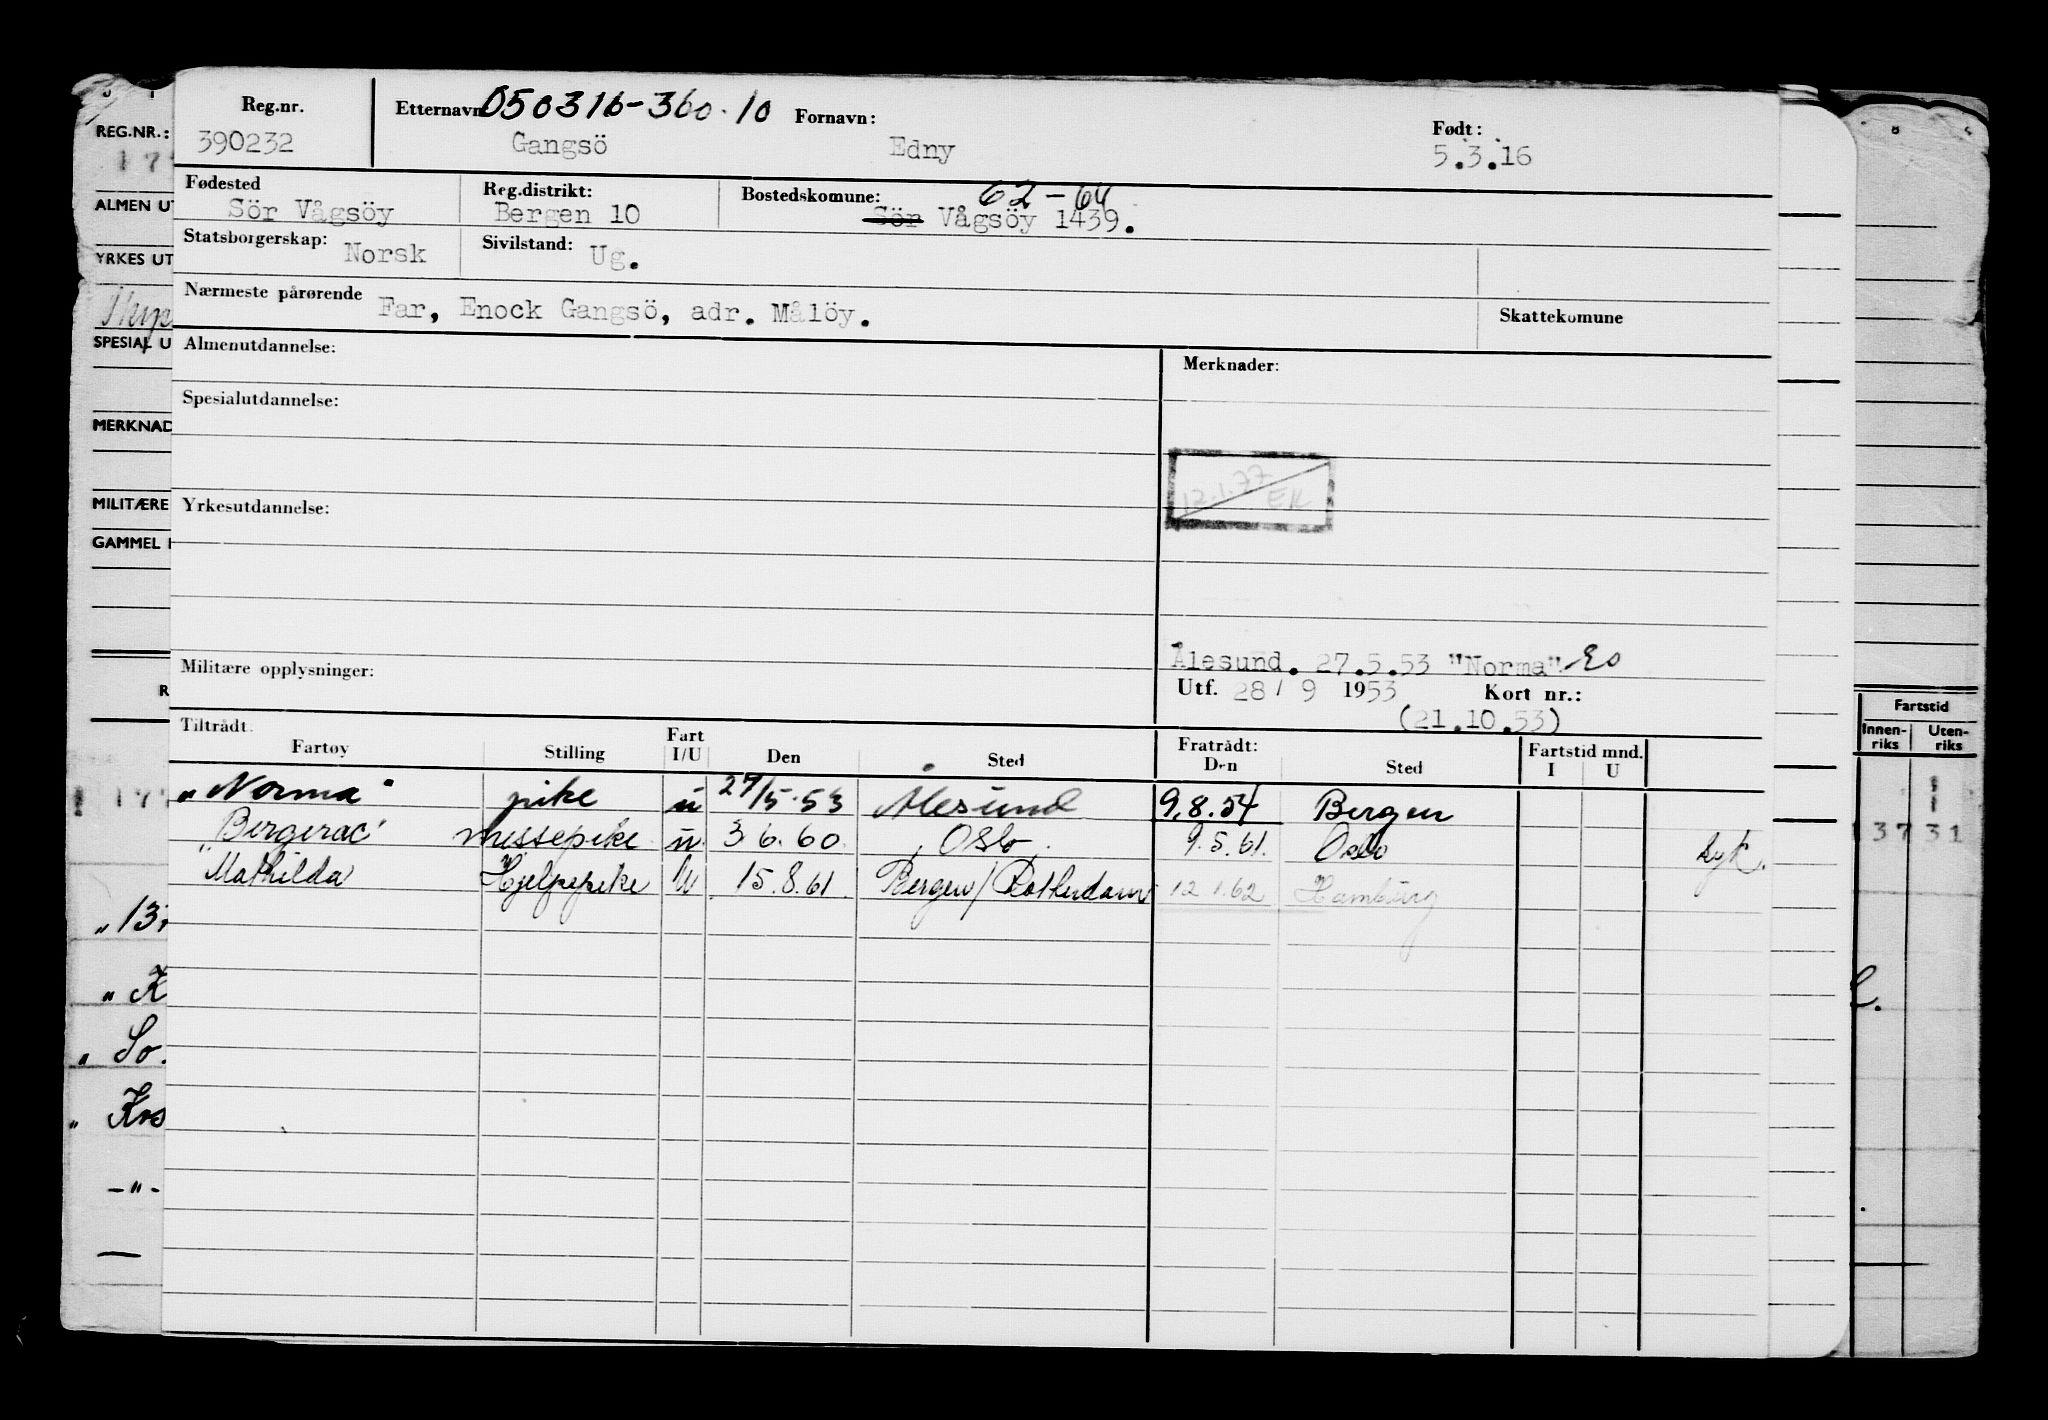 Reg.nr. Etternavn 050316-360.10 Fornavn: Født:
390232 Gangsö Edny 5.3.16
Fødested Reg.distrikt: Bostedskomune: 62-64
Sör Vågsöy Bergen 10 Sör Vågsöy 1439.
Statsborgerskap: Norsk Sivilstand: Ug.
Nærmeste pårørende Far, Enock Gangsö, adr. Målöy. Skattekomune
Almenutdannelse: Merknader:
Spesialutdannelse:
12.1.77 EK
Yrkesutdannelse:
Ålesund. 27.5.53 "Norma"
Militære opplysninger: Utf. 28/9 1953 Kort nr.:
(21.10.53)
Tiltrådt. Fratrådt: Fartstid mnd.
Fartøy Stilling Fart I/U Den Sted Den Sted I U
"Norma" pike u 27/5-53 Ålesund 9.8.54 Bergen
Bergerac" messepike u 3.6.60 Oslo 9.5.61. Oslo
"Mathilda Hjelpepike U 15.8.61 Bergen/Rotterdam 12.1.62 Hamburg
REG.NR.:
ALMEN UT
YRKES UT
SPESIAL U
MERKNAD
MILITÆRE
GAMMEL
R
"13
" K
" So.
" Krs
-"-
Fartstid
Innen-riks Uten-riks
37 31